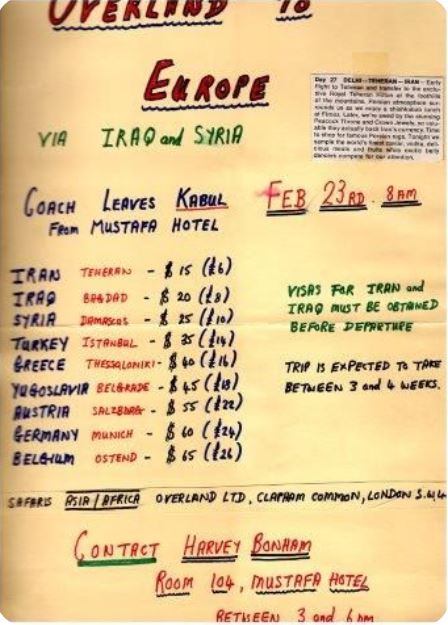 OVERLAND TO
EUROPE
VIA IRAQ and SYRIA
Day 27 DELHI—TEHERAN—IRAN— Early
flight to Teheran and transfer to the exclu-
sive Royal Teheran Hilton at the foothills
of the mountains. Persian atmosphere sur-
rounds us as we enjoy a chelokabab lunch
at Later, we're awed by the stunning
Peacock Throne and Crown Jewels, so valu-
able they actually back Iran's currency. Time
to shop for famous Persian rugs. Tonight we
sample the world's finest caviar, vodka, deli-
cious meats and fruits while exotic belly
dancers compete for our attention.
COACH LEAVES KABUL FEB 23RD. 8AM
FROM MUSTAFA HOTEL
IRAN TEHERAN - $ 15 (£6)
IRAQ BAGDAD - $ 20 (£8)
SYRIA DAMASCUS - $ 25 (£10)
TURKEY ISTANBUL - $ 35 (£14)
GREECE THESSALONIKI - $ 40 (£16)
YUGOSLAVIA BELGRADE - $ 45 (£18)
AUSTRIA SALZBURG - $ 55 (£22)
GERMANY MUNICH - $ 60 (£24)
BELGIUM OSTEND - $ 65 (£26)
VISAS FOR IRAN and
IRAQ MUST BE OBTAINED
BEFORE DEPARTURE
TRIP IS EXPECTED TO TAKE
BETWEEN 3 and 4 WEEKS.
SAFARIS ASIA/AFRICA OVERLAND LTD, CLAPHAM COMMON, LONDON S.W.4
CONTACT HARVEY BONHAM
ROOM 104, MUSTAFA HOTEL
BETWEEN 3 and 6 pm